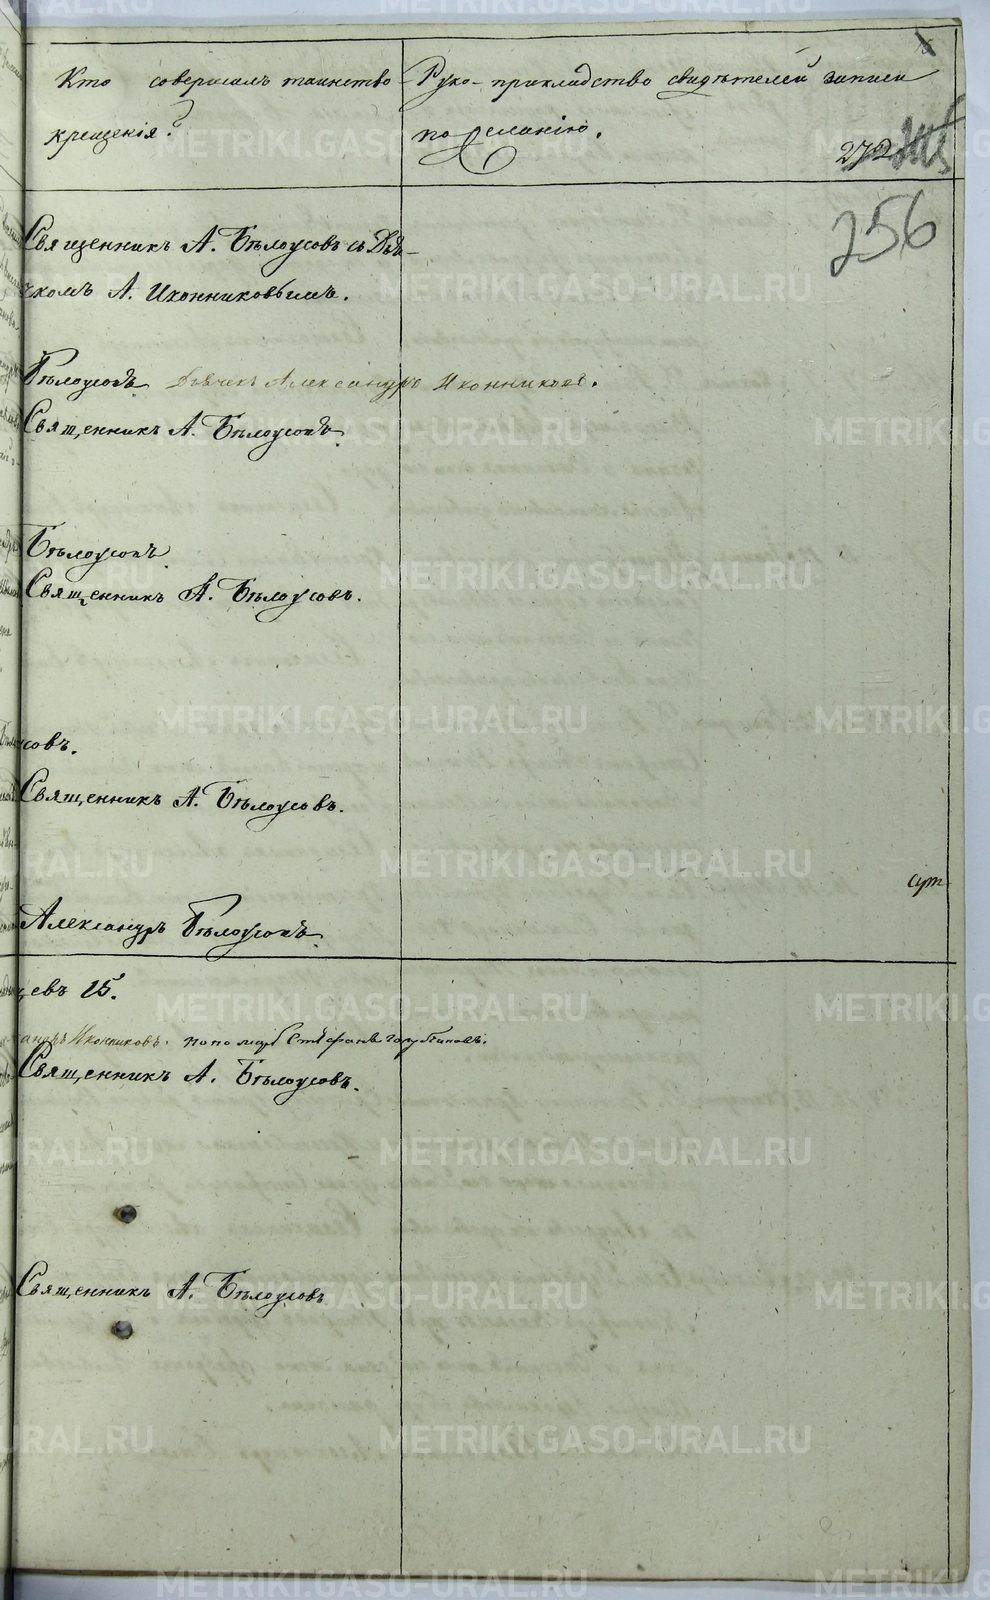 Кто совершалъ таинство крещенія?
Руко-прикладство свидѣтелей записи по желанію.
272
256
Священникъ А. Бѣлоусовъ съ Дья-
чкомъ А. Иконниковымъ.
Бѣлоусовъ. Дьячекъ Александръ Иконниковъ.
Священникъ А. Бѣлоусовъ.
Бѣлоусовъ.
Священникъ А. Бѣлоусовъ.
усовъ.
Священникъ А. Бѣлоусовъ.
Александръ Бѣлоусовъ.
цевъ 15.
андръ Иконниковъ. пономарь Стефанъ
Священникъ А. Бѣлоусовъ.
Священникъ А. Бѣлоусовъ
METRIKI.GASO-URAL.RU